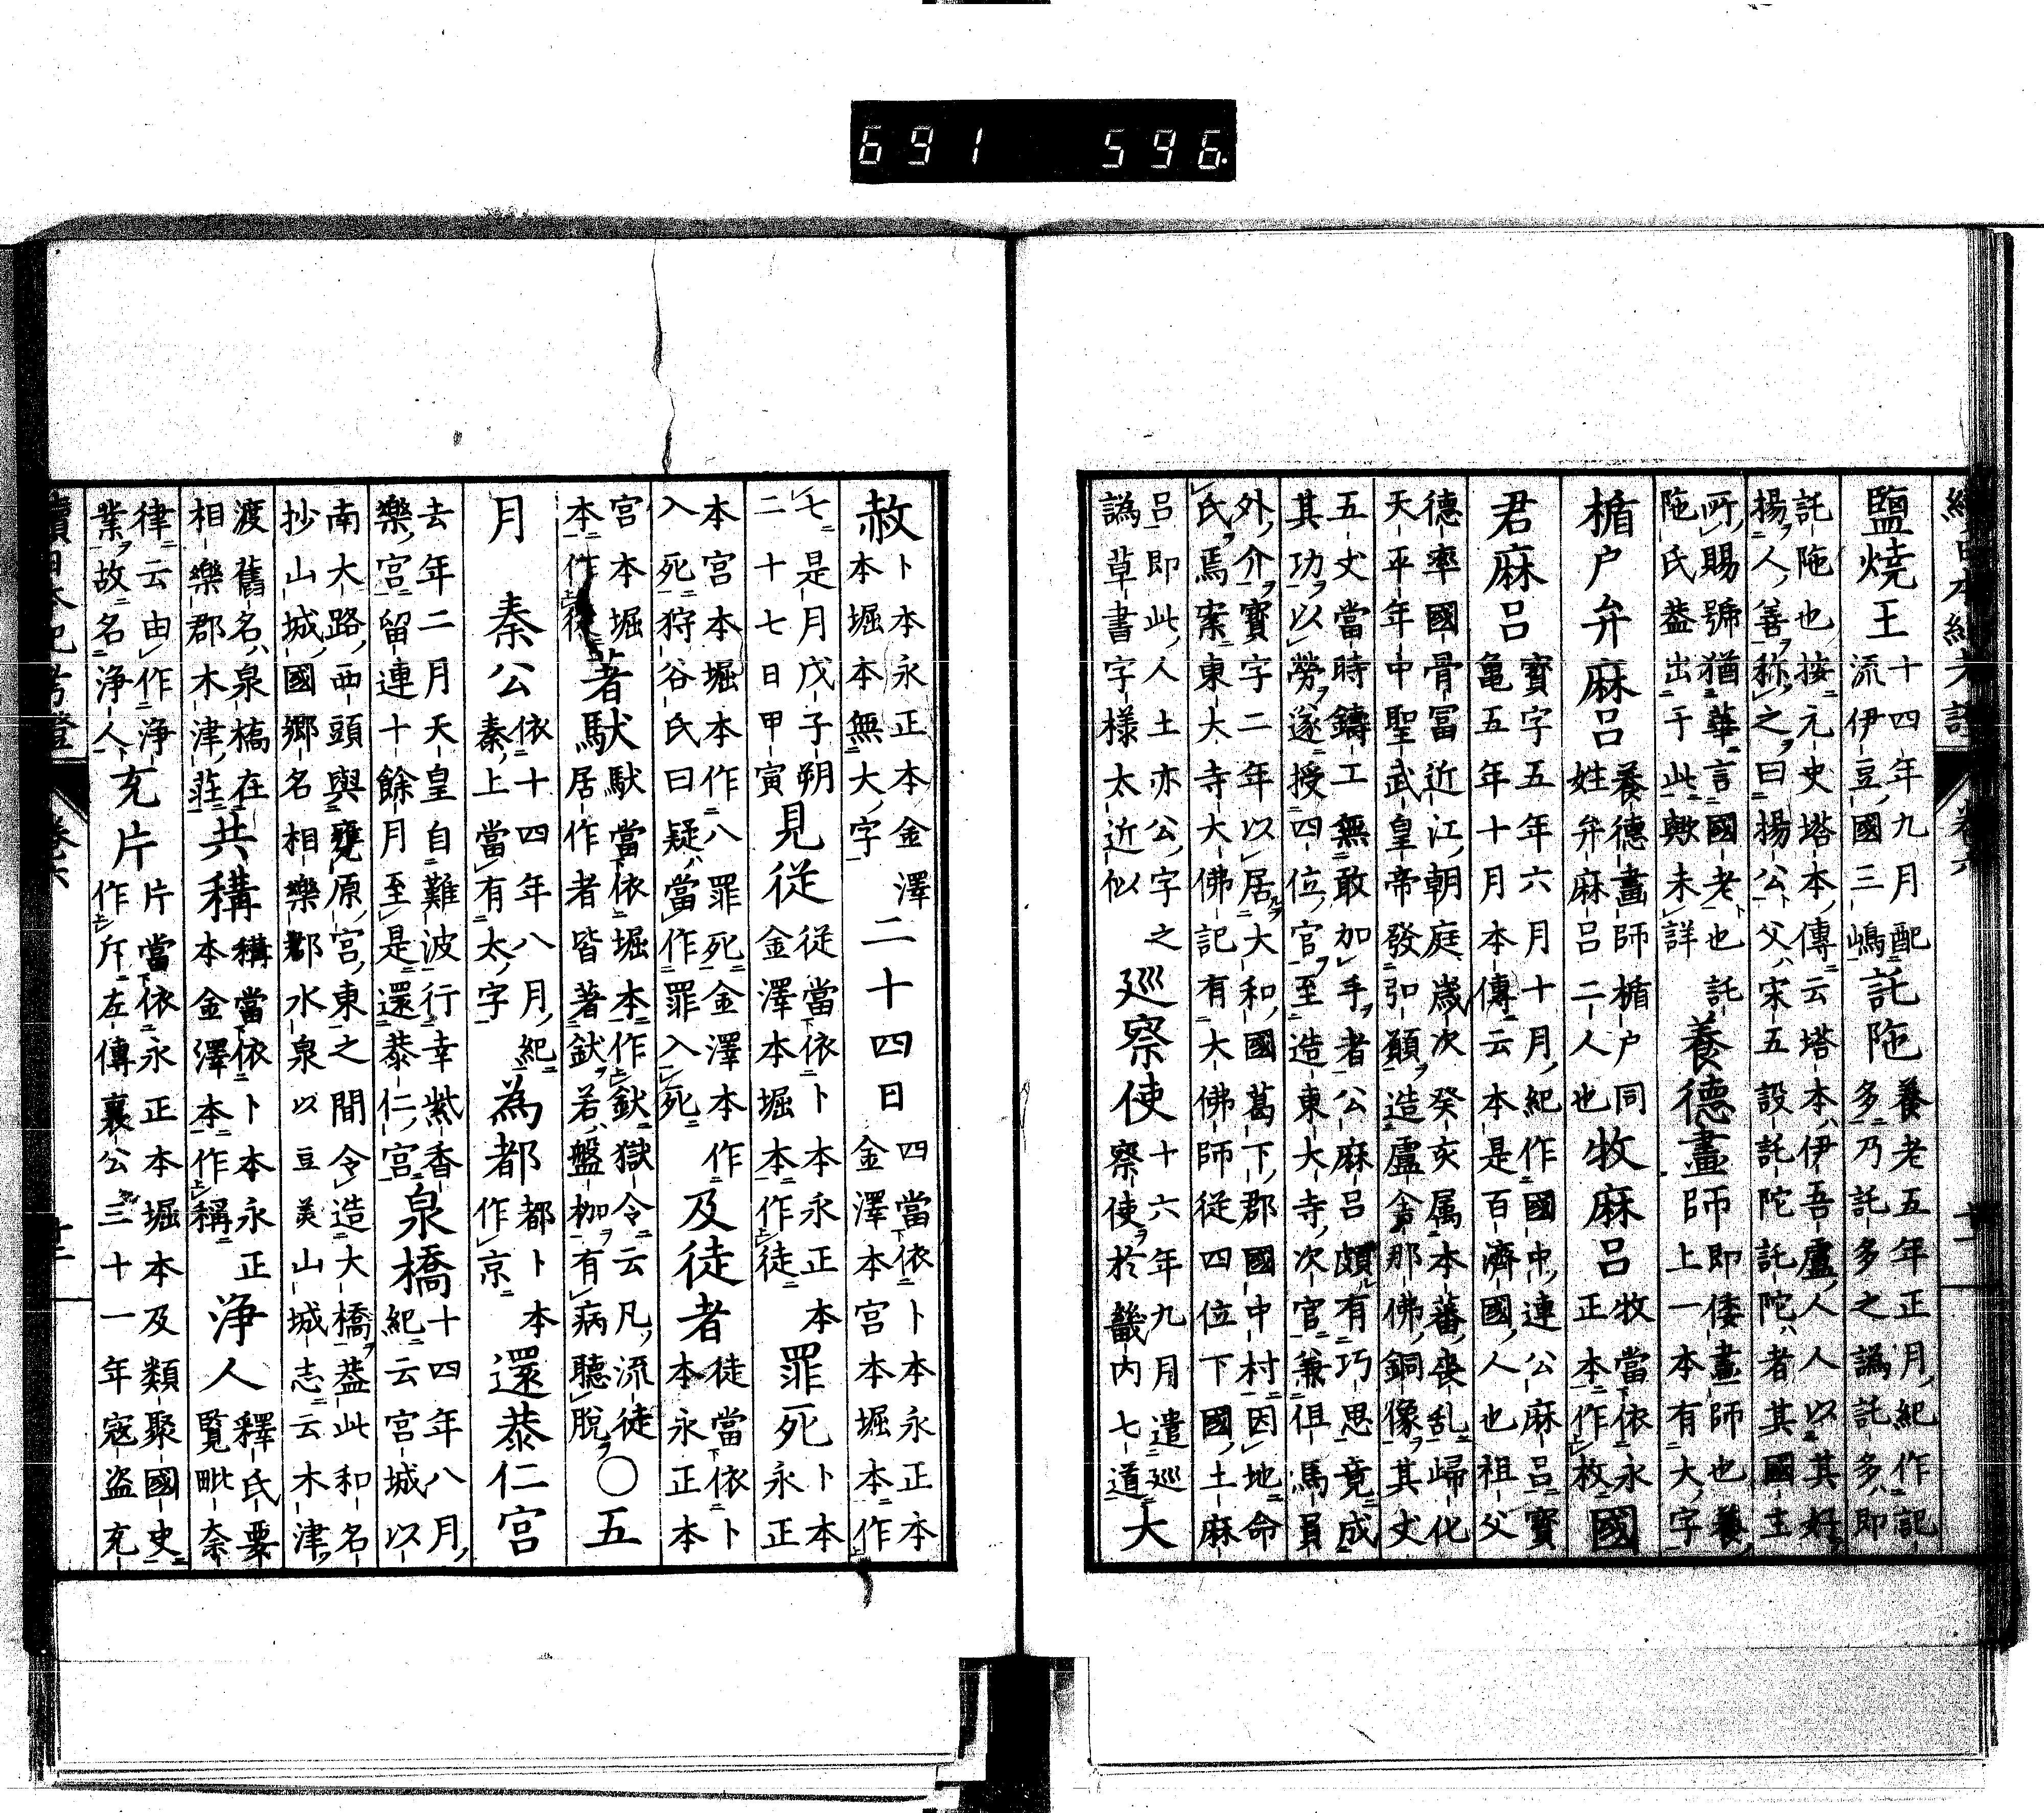 鹽燒王十四年九月配
流伊豆國三嶋託陁養老五年正月紀作記
多乃託多之譌託多即
託陁也按元史塔本傳云塔本伊吾盧人人以其好
揚人善称之曰揚公父宋五設託陀託陀者其國主
所賜號猶華言國老也託
陁氏蓋出于此歟未詳養德畫師即倭畫師也養
上一本有大字
楯户弁麻呂養德畫師楯户同
姓弁麻呂二人也牧麻呂牧當依永
正本作枚國
君麻呂寶字五年六月十月紀作國中連公麻呂寶
亀五年十月本傳云本是百濟國人也祖父
德率國骨冨近江朝庭歲次癸亥属本蕃丧乱歸化
天平年中聖武皇帝發弘願造盧舍那佛銅像其丈
五丈當時鑄工無敢加手者公麻呂頗有巧思竟成
其功以勞遂授四位官至造東大寺次官兼但馬員
外介寶字二年以居大和國葛下郡國中村因地命
氏焉案東大寺大佛記有大佛師從四位下國土麻
呂即此人土亦公字之
譌草書字様太近似巡察使十六年九月遣巡
察使於畿内七道大
赦卜本永正本金澤
本堀本無大字二十四日四當依卜本永正本
金澤本宮本堀本作
七是月戊子朔
二十七日甲寅見從從當依卜本永正本
金澤本堀本作徒罪死卜本
永正
本宮本堀本作八罪死金澤本作
入死狩谷氏曰疑當作罪入死及徒者徒當依卜
本永正本
宮本堀
本作從著馱馱當依堀本作釱獄令云凡流徒
居作者皆著釱若盤枷有病聽脫○五
月　秦公依十四年八月紀
秦上當有太字為都都卜本
作京還恭仁宮
去年二月天皇自難波行幸紫香
樂宮留連十餘月至是還恭仁宮泉橋十四年八月
紀云宮城以
南大路西頭與甕原宮東之間令造大橋蓋此和名
抄山城國郷名相樂郡水泉以豆美山城志云木津
渡舊名泉橋在
相樂郡木津莊共耩耩當依卜本永正
本金澤本作稱浄人釋氏要
覧毗奈
律云由作浄
業故名浄人充片片當依永正本堀本及類聚國史
作斥左傳襄公三十一年寇盗充
續日本紀考證　卷六　十二
691 596